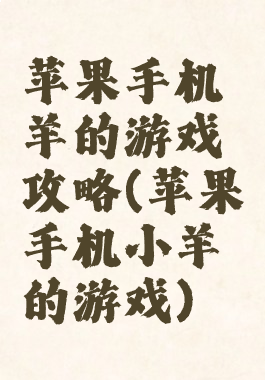 苹果手机
羊的游戏
攻略(苹果
手机小羊
的游戏)